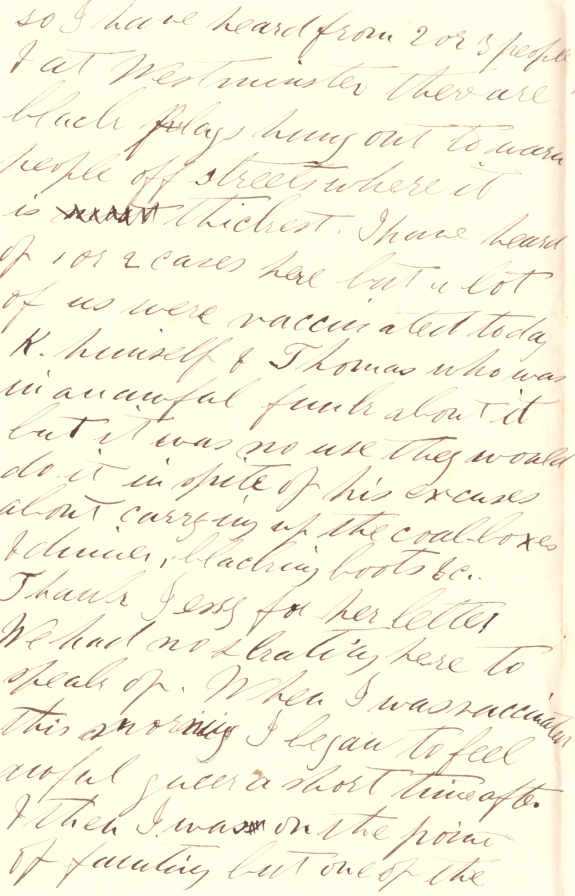 so I have heard from 2 or 3 people
& at Westminster there are
black flags hung out to warn
people off streets where it
is thickest. I have heard
of 1 or 2 cases here but a lot
of us were vaccinated today
K. himself & Thomas who was
in an awful funk about it
but it was no use they would
do it in spite of his excuses
about carrying up the coal-boxes
& dinner, blacking boots &c.
Thank Jessy for her letter
We had no skating here to
speak of. When I was vaccinated
this morning I began to feel
awful queer a short time after
& then I was on the point
of fainting but one of the